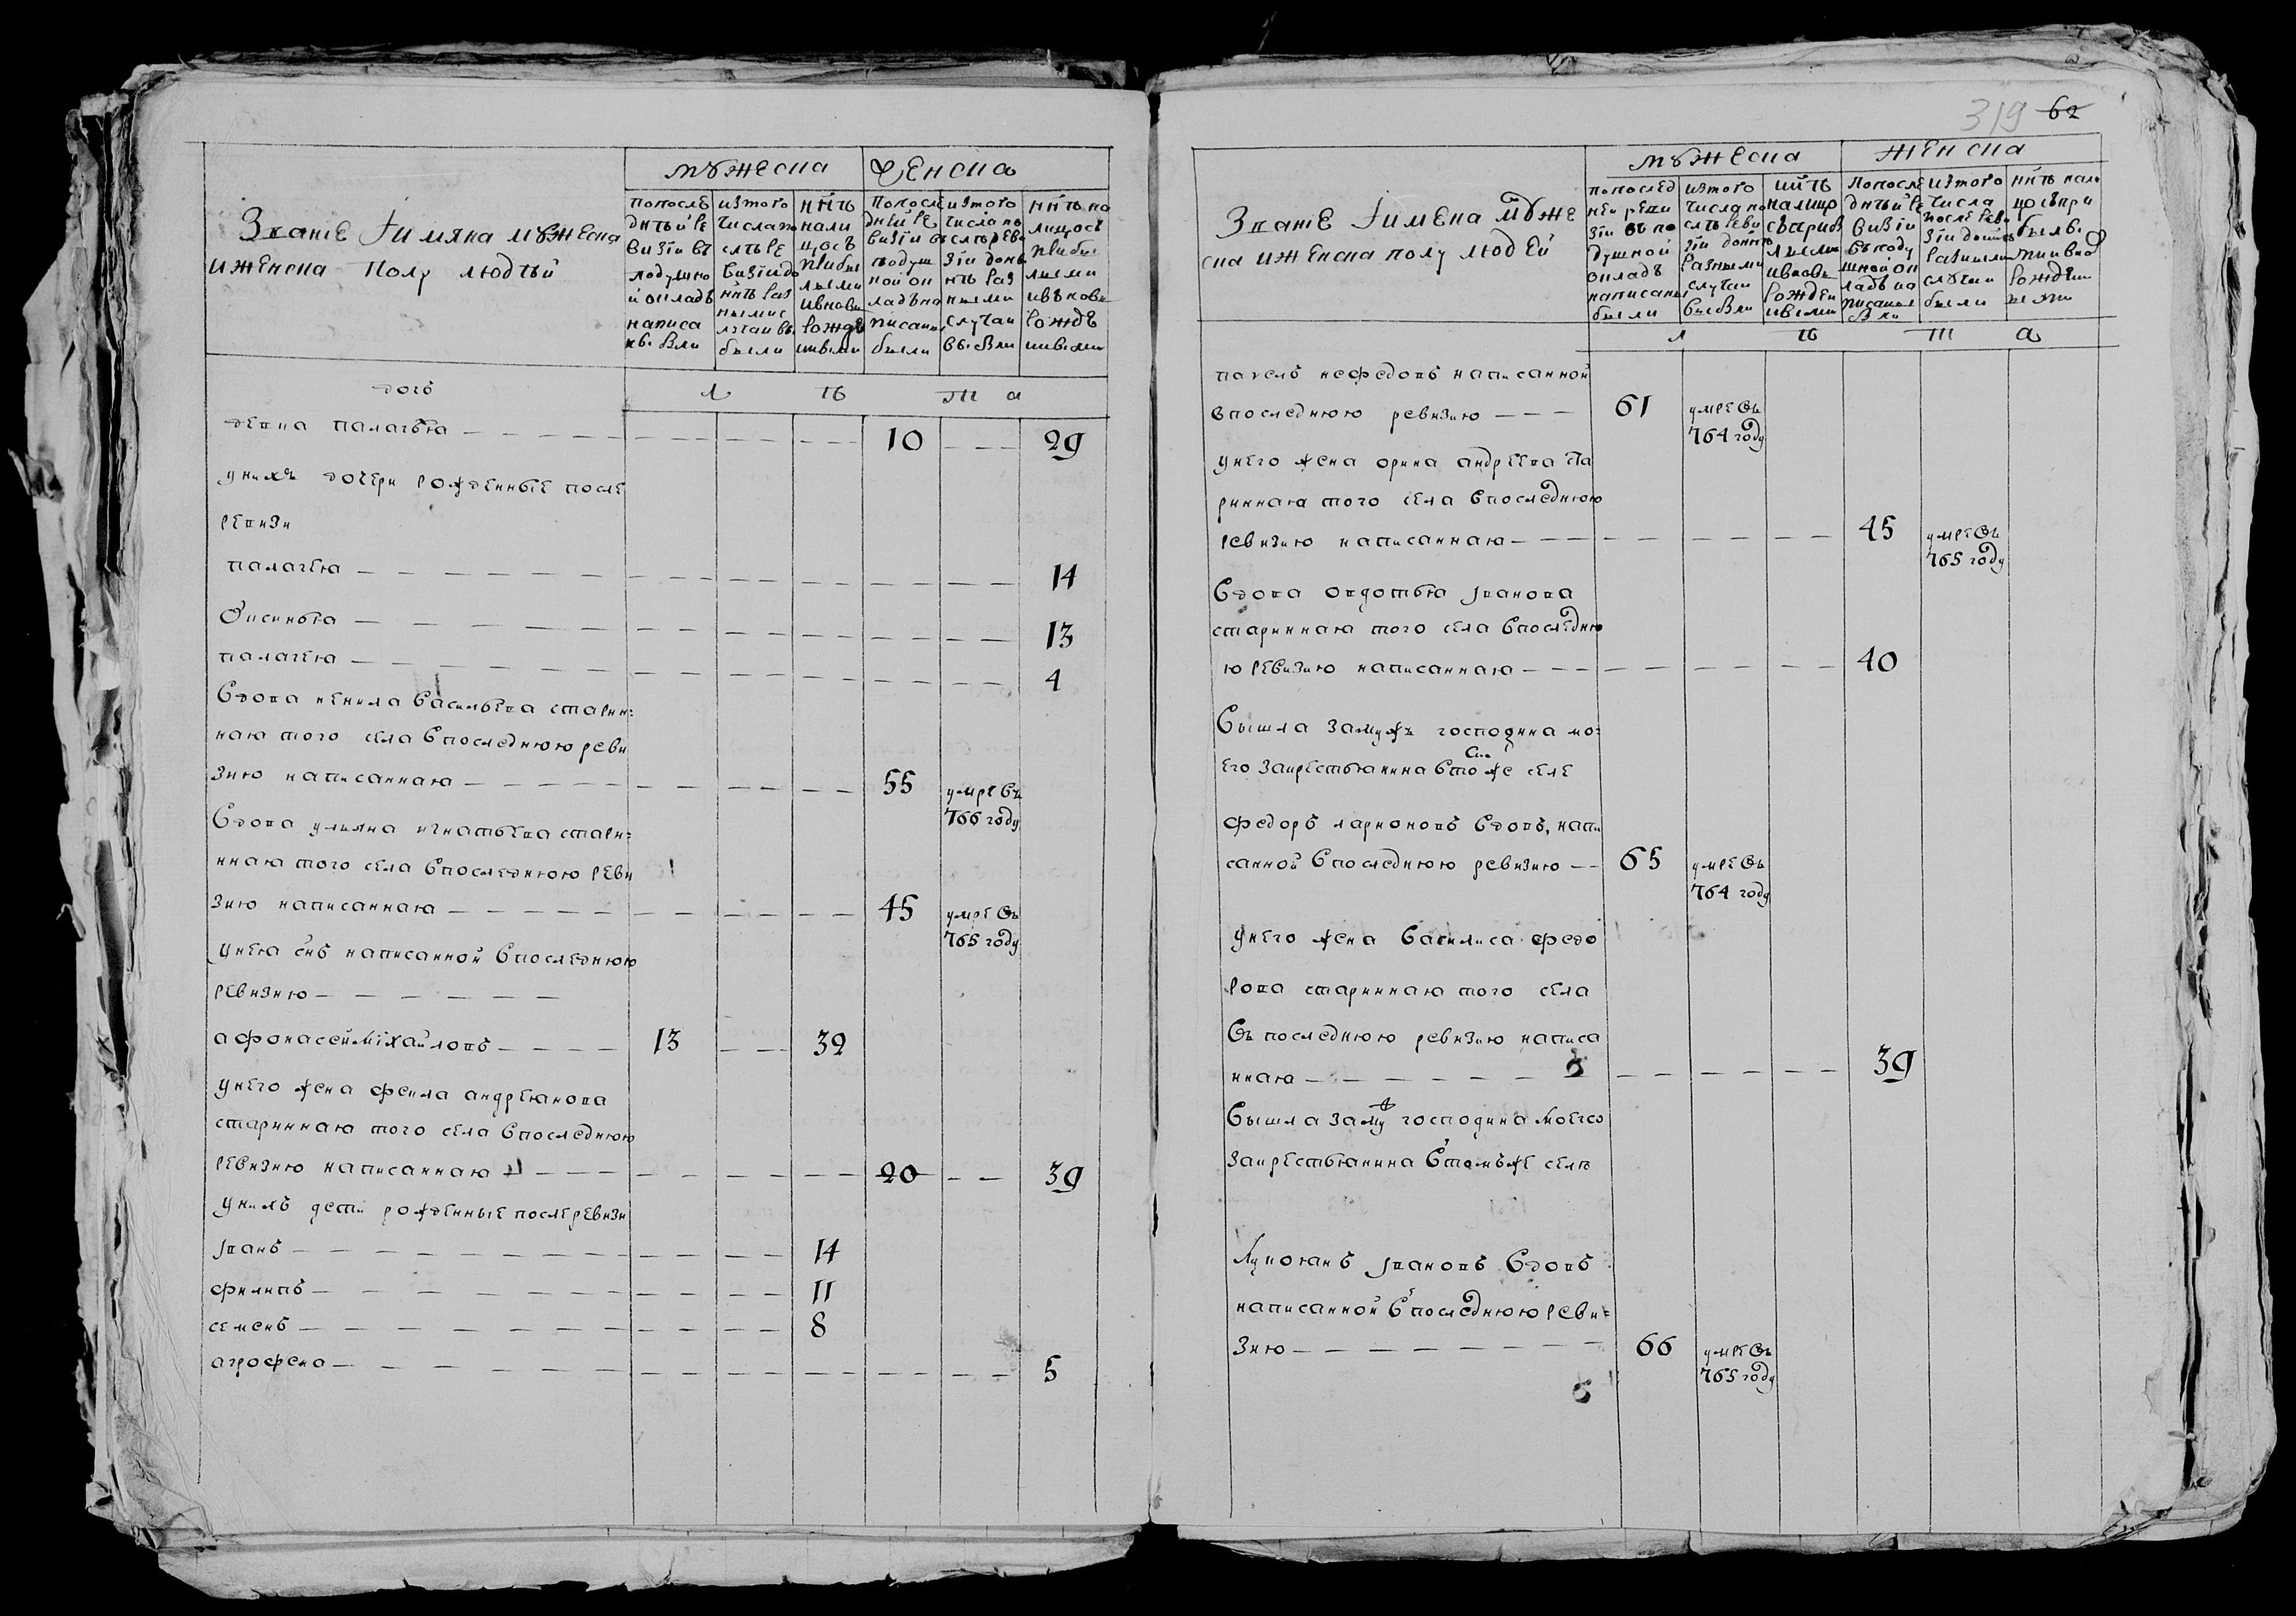 мꙋжеска женска
Званіе Iимяна мꙋжеска
иженска полу людѣй
попослѣ
днѣй ре
визіи въ
подушно
й окладѣ
написа
ны были
изтого
числапо
слѣ ре
визіидо
нѣ раз
нымис
лучаи вы
были
нѣ
нали
цосъ
прибы
лыми
ивновь
рожде
ными
попосле
дней ре
визіи въ
подуш
ной ок
ладъна
писаны
были
изтого
числа по
слѣреви
зіи доны
нѣ раз
ными
случаи
выбыли
нѣ на
лицосъ
прибы
лыми
ивъновь
рожде
ными
л ѣ т а
дочь
девка палагѣя 10 29
унихъ дочери рожденные после
ревизи
палагея 14
Оксинья 13
палагея 4
Вдова ненила васильева старин=
ная того села впоследнюю реви
зию написанная 55 умре въ
766 году
Вдова ульяна игнатьева стари=
нная того села впоследнюю реви
зию написанная 45 умре въ
765 году
унея снъ написанной впоследнюю
ревизию
афонассей міхайловъ 13 32
унего жена фекла андреянова
стариннаю того села впоследнюю
ревизию написанная 20 39
унихъ дети рожденные послеревизи
Iванъ 14
филипъ 11
семенъ 8
агрофена 5
319 62
мꙋжеска женска
Званіе Iимена мꙋже
ска иженска полу людей
попослед
ней реви
зіи въ по
душной
окладъ
написаны
были
изтого
числа по
слѣ реви
зіи донынѣ
разными
случаи
выбыли
нѣ
налицо
съприбы
лыми
ивновь
рожден
ными
попосле
днѣй ре
визіи
въ поду
шной ок
ладъ на
писаны
были
изтого
числа
после реви
зіи донынѣ
разными
случаи
были
нѣ нали
цосъпри
былы
ми ивно
рожден
ными
л ѣ т а
павелъ нефедовъ написанной
впоследнюю ревизию 61 умре въ
764 году
унего жена орина андреева ста
ринная того села впоследнюю
ревизию написанная 45 умре въ
765 году
Вдова овдотья Iванова
старинная того села впоследню
ю ревизию написанная 40
Вышла замужъ господина мо=
его закрестьянина втомже селе
федоръ ларионовъ вдовъ, напи
санной впоследнюю ревизию 65 умре въ
764 году
унего жена василиса федо
рова старинная того села
въ последнюю ревизию написа
нная 39
Вышла замуж господина моего
закрестьянина втомъже селѣ
Лукоянъ Iвановъ вдовъ
написанной впоследнюю реви=
зию 66 умре въ
765 году